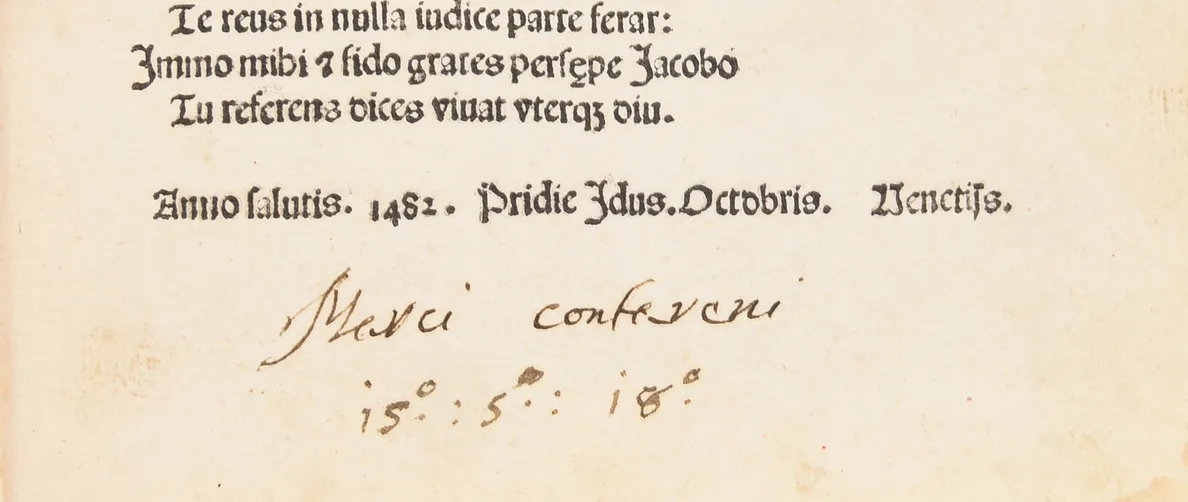 Te reus in nulla iudice parte ferar:
Immo mihi ⁊ fido grates persępe Jacobo
Tu referens dices viuat vterqꝫ diu.
Anno salutis. 1482. Pridie Idus. Octobris. Venetijs.
Merci confereni
15º: 5º: 18º